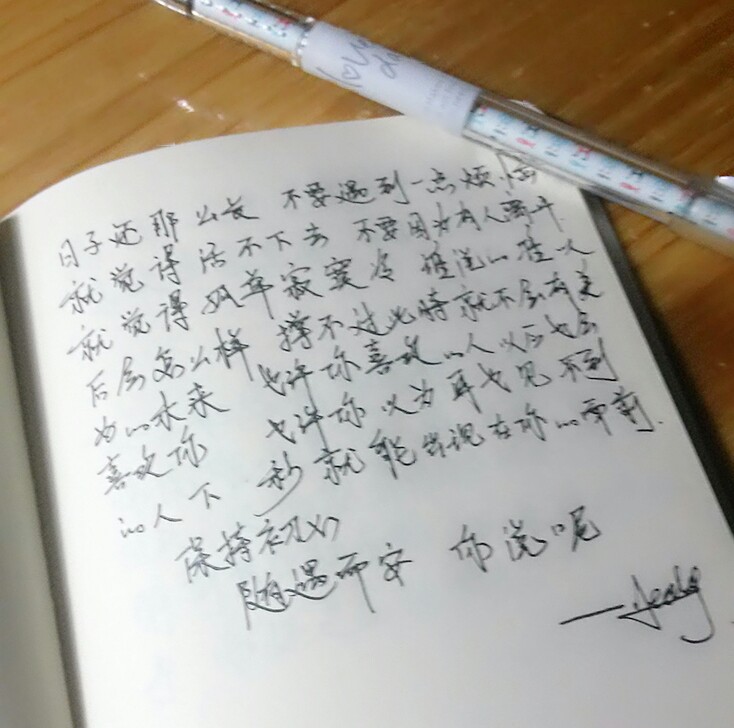 love
日子还那么长 不要遇到一点烦恼
就觉得活不下去 不要因为有人离开
就觉得孤单寂寞冷 谁说的准以
后会怎么样 撑不过此时就不会有美
好的未来 也许你喜欢的人以后也会
喜欢你 也许你以为再也见不到
的人下一秒就能出现在你的面前.
保持初心
随遇而安 你说呢